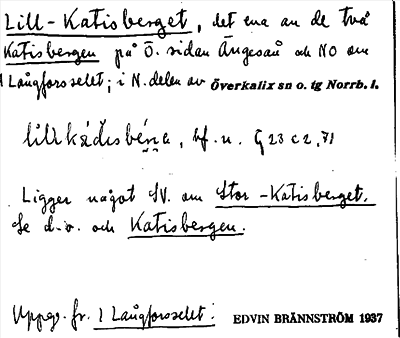 Lill-Katisberget, det ena av de två
Katisbergen på Ö. sidan Ängesån och NO om
1 Långforsselet; i N. delen av Överkalix sn o. tg Norrb. l.
bf. n. G 23 c 2, 71
Ligger något SV. om Stor-Katisberget.
Se d.o. och Katisbergen.
Uppg. fr. 1 Långforsselet: EDVIN BRÄNNSTRÖM 1937